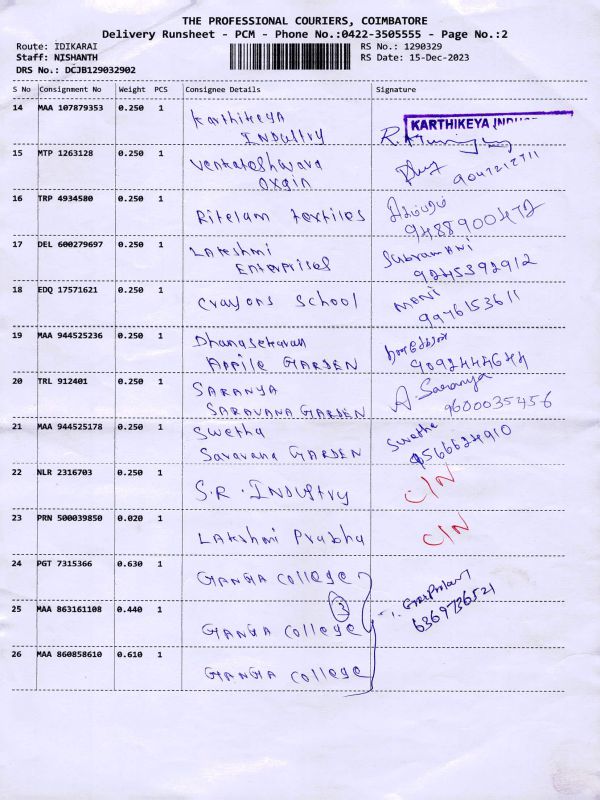 THE PROFESSIONAL COURIERS, COIMBATORE
Delivery Runsheet - PCM - Phone No.:0422-3505555 - Page No.:2
Route: IDIKARAI
RS No.: 1290329
Staff: NISHANTH
RS Date: 15-Dec-2023
DRS No.: DCJB129032902
S No Consignment No Weight PCS Consignee Details Signature
14 MAA 107879353 0.250 1 Karthikeya
Industry
KARTHIKEYA
15 MTP 1263128 0.250 1 Venkateshwara
Oxgin
9047212711
16 TRP 4934580 0.250 1 Ritelam textiles
9488900472
17 DEL 600279697 0.250 1 Lakshmi
Enterprises
Subramani
9245392912
18 EDQ 17571621 0.250 1 Crayons School
Mani
9976153611
19 MAA 944525236 0.250 1 Dhanasekaran
Appile GARDEN
9092444644
20 TRL 912401 0.250 1 SARANYA
SARAVANA GARDEN
A. Saranya
9600035456
21 MAA 944525178 0.250 1 Swetha
Saravana GARDEN
Swetha
9566624910
22 NLR 2316703 0.250 1 S.R. Industry
C/N
23 PRN 500039850 0.020 1 Lakshmi Prabhu
C/N
24 PGT 7315366 0.630 1 GANGA College
3
6369736521
25 MAA 863161108 0.440 1 GANGA College
26 MAA 860858610 0.610 1 GANGA College